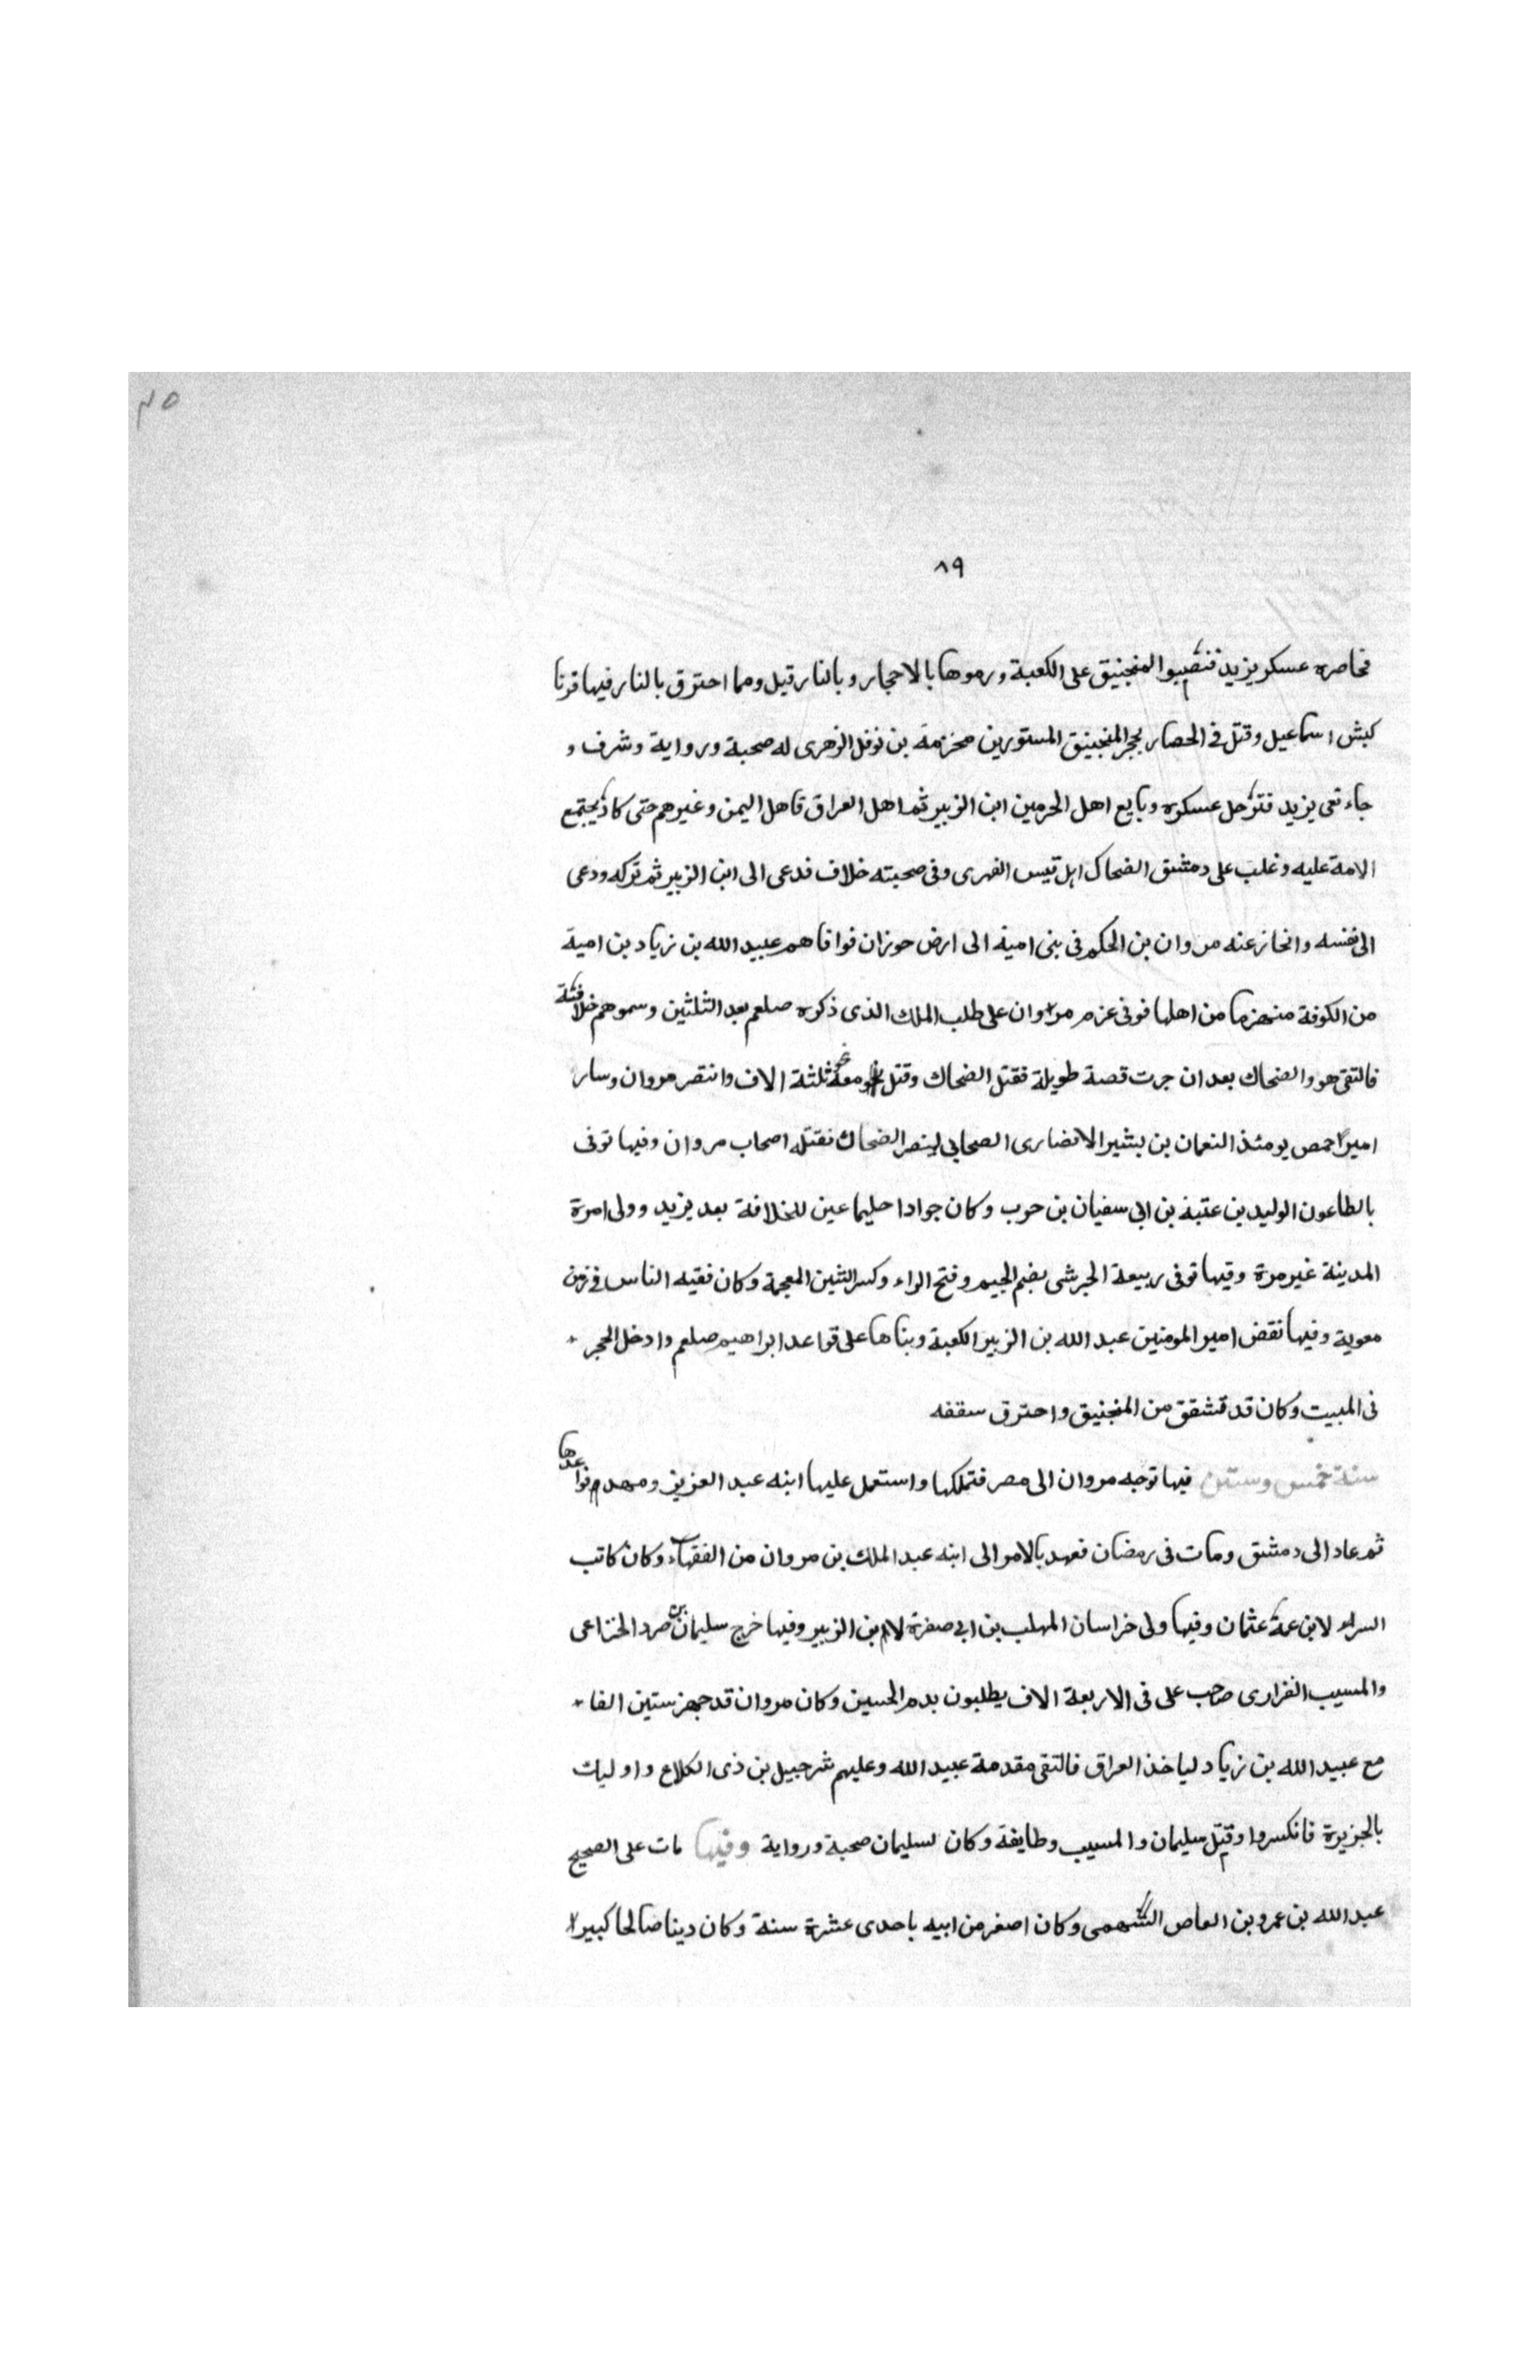 ٤٥
٨٩
فحاصره عسكر يزيد فنصبوا المنجنيق على الكعبة ورموها بالاحجار وبالنار قيل ومما احترق بالنار فيها قرنا
كبش اسماعيل وقتل في الحصار بحجر المنجنيق المستورين مخزمة بن نوفل الزهرى له صحبة ورواية وشرف و
جاء نعى يزيد فترحل عسكره وبايع اهل الحرمين ابن الزبير ثم اهل العراق قاهل اليمن وغيرهم حتى كاد يجتمع
الامة عليه وغلب على دمشق الضحاك ابن قيس الفهرى وفى صحبته خلاف فدعى الى ابن الزبير ثم تركه ودعى
الى نفسه وانحاز عنه مروان بن الحكم فى بنى امية الى ارض حوران فوافاهم عبيد الله بن زياد بن امية
من الكوفة منهزما من اهلها فوفى عزم مروان على طلب الملك الذى ذكره صلعم بعد الثلثين وسموهم خلافته
فالتقى هو والضحاك بعد ان جرت قصة طويلة فقتل الضحاك وقتل معه نحو ثلثة الاف وانتصر مروان وسار
امير احمص يومئذ النعمان بن بشير الانصارى الصحابى لينصر الضحاك فقتله اصحاب مروان وفيها توفى
بالطاعون الوليد بن عتبة بن ابى سفيان بن حرب وكان جوادا حليما عين للخلافة بعد يزيد وولى امرة
المدينة غير مرة وفيها توفى ربيعة الجرشى بضم الجيم وفتح الراء وكسر الشين المعجمة وكان فقيه الناس فى زمن
معوية وفيها نقض امير المومنين عبد الله بن الزبير الكعبة وبناها على قواعد ابراهيم صلعم وادخل الحجر
فى البيت وكان قد تشقق من المنجنيق واحترق سقفه
سنة خمس وستين فيها توجه مروان الى مصر فتملكها واستعمل عليها ابنه عبد العزيز ومهدم قواعدها
ثم عاد الى دمشق ومات فى رمضان فعهد بالامر الى ابنه عبد الملك بن مروان من الفقهاء وكان كاتب
السراء لابن عمه عثمان وفيها ولى خراسان المهلب بن ابى صفرة لابن الزبير وفيها خرج سليمان بن صرد الخزاعى
والمسيب الفزارى صاحب على فى الاربعة الاف يطلبون بدم الحسين وكان مروان قد جهز ستين الفا
مع عبيد الله بن زياد لياخذ العراق فالتقى مقدمة عبيد الله وعليهم شرجبيل بن ذى الكلاع واوليك
بالجزيرة فانكسروا وقتل سليمان والمسيب وطايفة وكان لسليمان صحبة ورواية وفيها مات على الصحيح
عبد الله بن عمرو بن العاص السهمى وكان اصغر من ابيه باحدى عشرة سنة وكان دينا صالحا كبيرا